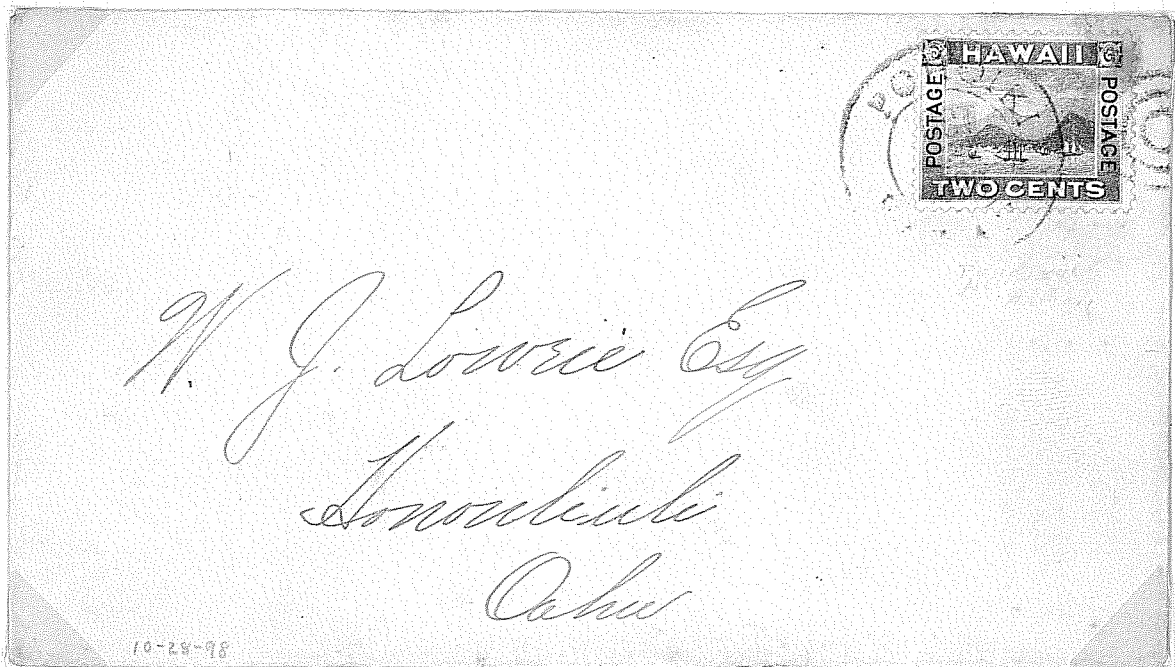 HAWAII
POSTAGE
POSTAGE
TWO CENTS
W. J. Lowrie Esq
Honouliuli
Oahu
10-28-98